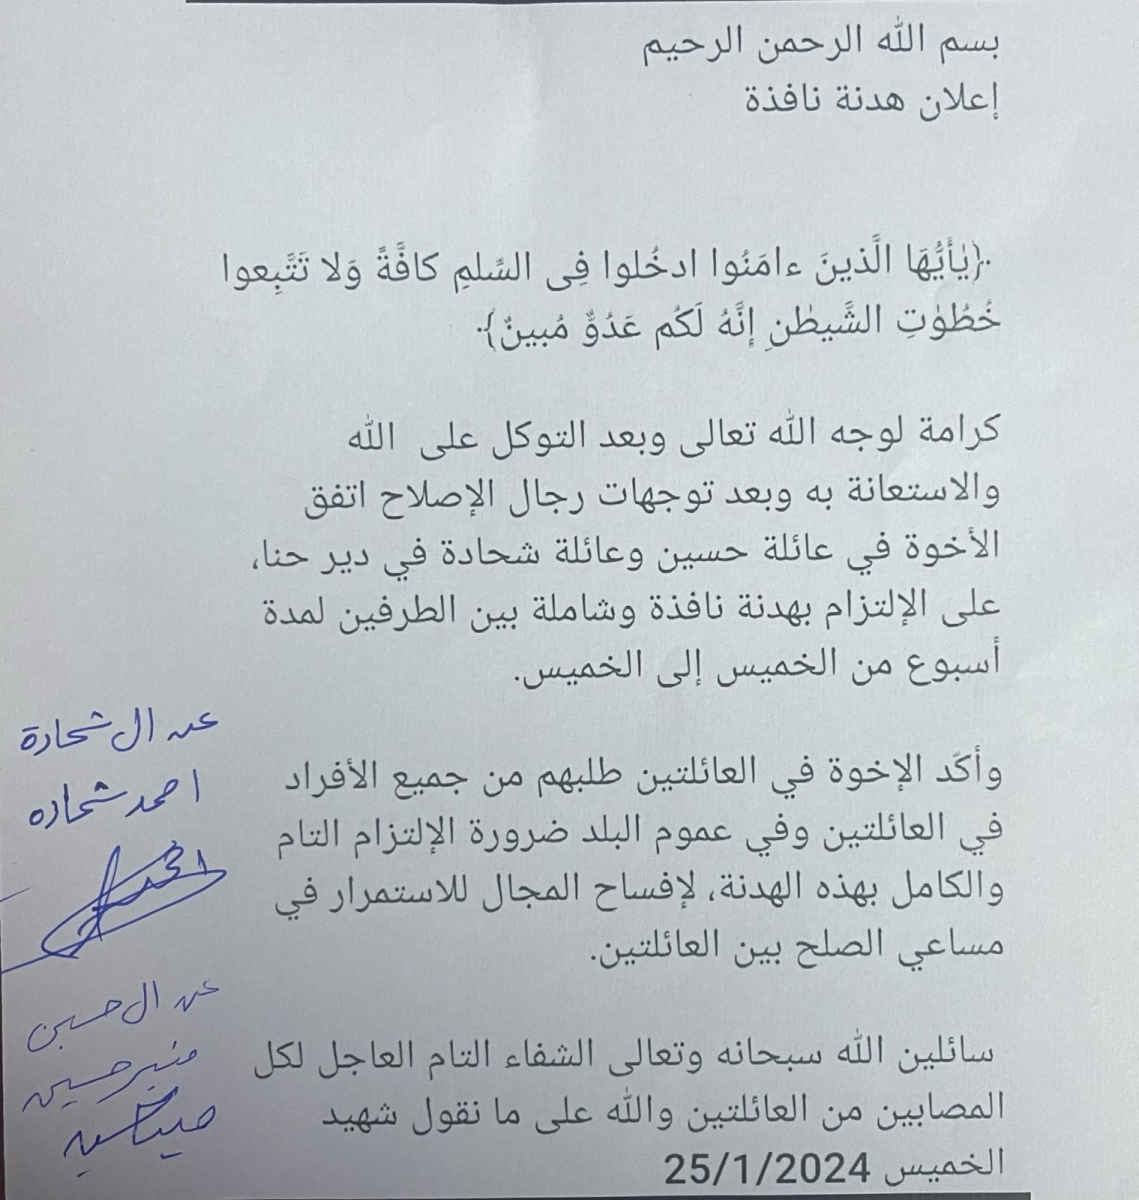 بسم الله الرحمن الرحيم
إعلان هدنة نافذة
{يٰأَيُّهَا الَّذينَ ءامَنُوا ادخُلوا فِى السِّلمِ كافَّةً وَلا تَتَّبِعوا
خُطُوٰتِ الشَّيطٰنِ إِنَّهُ لَكُم عَدُوٌّ مُبينٌ}
كرامة لوجه الله تعالى وبعد التوكل على الله
والاستعانة به وبعد توجهات رجال الإصلاح اتفق
الأخوة في عائلة حسين وعائلة شحادة في دير حنا،
على الإلتزام بهدنة نافذة وشاملة بين الطرفين لمدة
أسبوع من الخميس إلى الخميس.
وأكّد الإخوة في العائلتين طلبهم من جميع الأفراد
في العائلتين وفي عموم البلد ضرورة الإلتزام التام
والكامل بهذه الهدنة، لإفساح المجال للاستمرار في
مساعي الصلح بين العائلتين.
سائلين الله سبحانه وتعالى الشفاء التام العاجل لكل
المصابين من العائلتين والله على ما نقول شهيد
الخميس 25/1/2024
عن ال شحادة
احمد شحاده
عن ال حسين
منير حسين